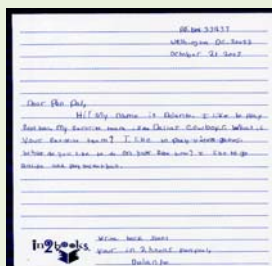 P.O. Box 33437
Washington DC. 20033
October 21 2003
Dear Pen Pal,
Hi! My name is Delante. I like to play
football. My favorite team is the Dallas Cowboys. What is
your favorite team? I like to play video games.
What do you like to do on your free time? I like to go
outside and play football.
Write back soon
your in2books penpal,
Delante
In2Books